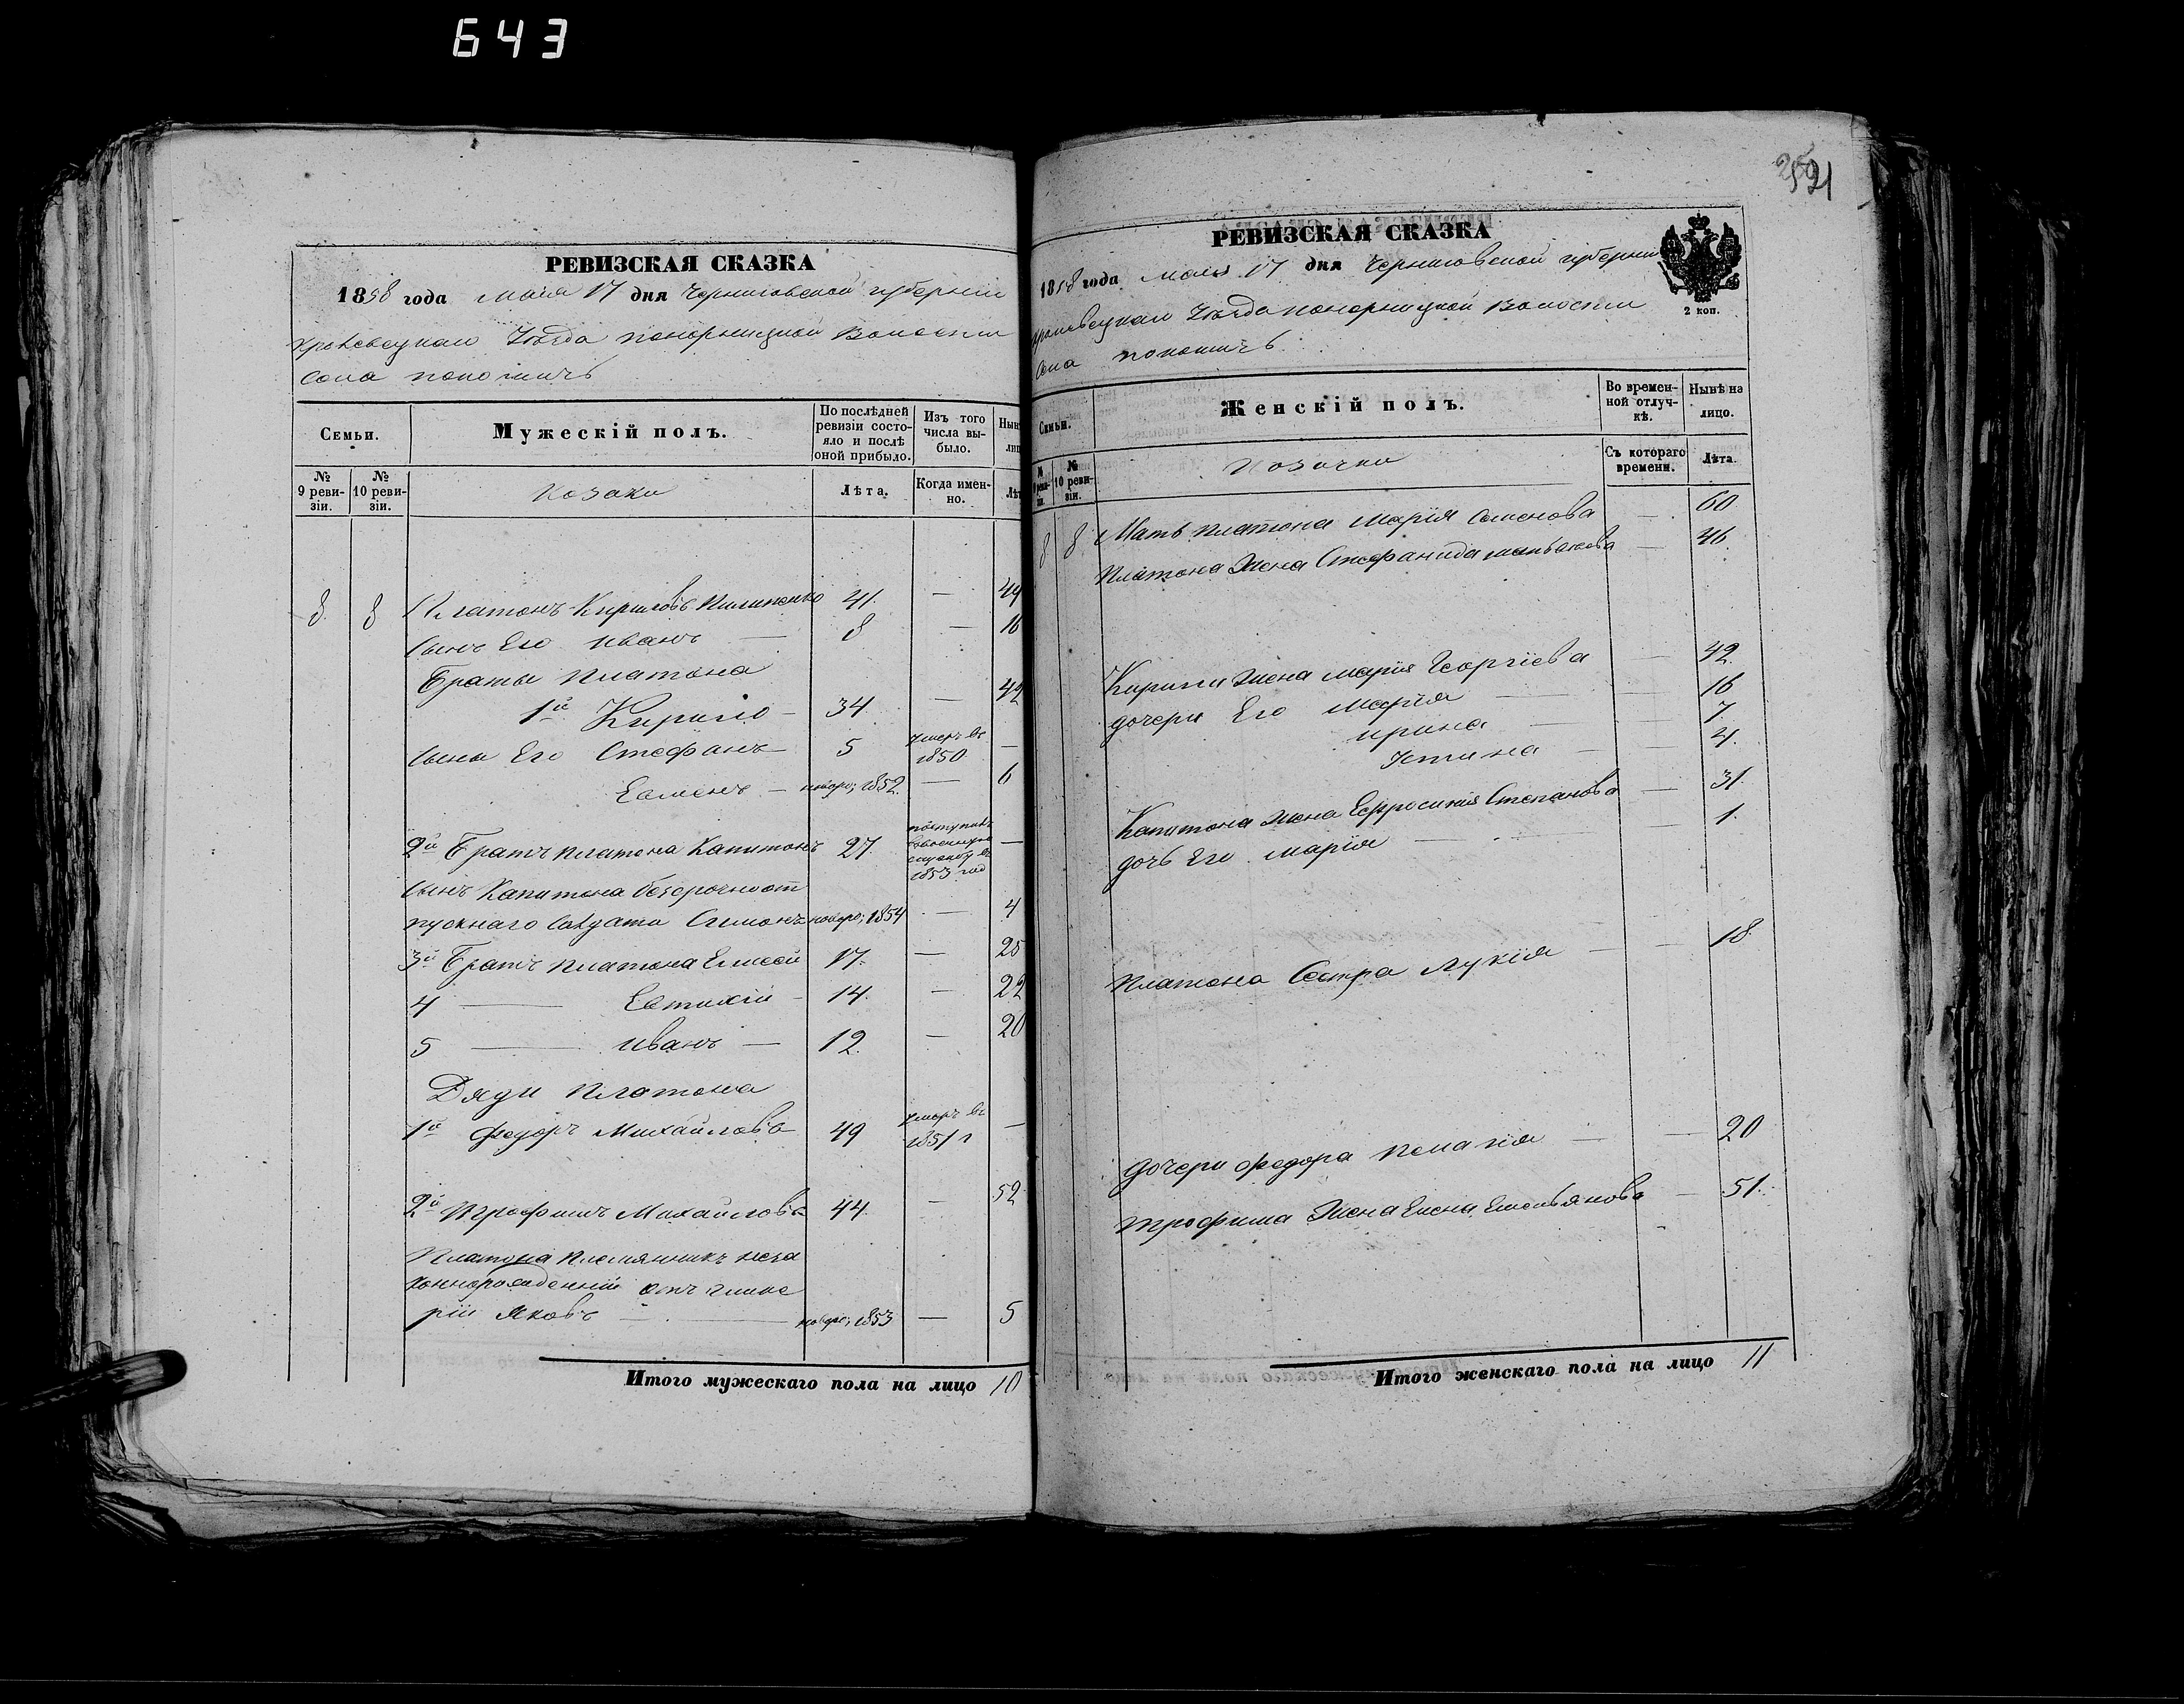 643
2521
РЕВИЗСКАЯ СКАЗКА
1858 года маія 17 дня Черниговской губерніи
Кролевецкаго Уѣзда понорницкой Волости
Села
Семьи.
Мужескій полъ.
По послѣдней ревизіи состояло и послѣ оной прибыло.
Изъ того числа выбыло.
Нын
лиц
№ 9 ревизіи.
№ 10 ревизіи.
Козаки
Лѣта.
Когда именно.
Лѣт
8 8 Платонъ Кириловъ Пилипенко 41. — 49
сынъ Его Иванъ — 8 — 16
Браты Платона
1й Кирило — 34 — 42
сына Его Стефанъ 5 умеръ въ 1850 —
Евменъ — новоро; 1852. — 6
2й Братъ Платона Капитонъ 27. поступилъ в военную службу въ 1853 год —
сынъ Капитона безсрочноот
пускнаго Солдата Симонъ новоро; 1854 — 4
3й Братъ Платона Елисей 17. — 25
4 — Евтихій — 14. — 22
5 — Иванъ — 12. — 20
Дяди Платона
1й Федоръ Михайловъ 49 умеръ въ 1851 г —
2й Трофимъ Михайловъ 44. — 52
Платона Племянникъ неза
коннорожденній отъ Глике
рии Яковъ — новоро; 1853 — 5
Итого мужескаго пола на лицо 10
РЕВИЗСКАЯ СКАЗКА
1858 года маія 17 дня Черниговской губерніи
Кролевецкаго Уѣзда понорницкой Волости
Села
2 коп.
Семьи.
Женскій полъ.
Во временной отлучкѣ.
Нынѣ на лицо.
№ 9 ревизіи.
№ 10 ревизіи.
Козачки
Съ котораго времени.
Лѣта.
8 8 Мать Платона Марія Семенова — 60
Платона Жена Стефанида — 46
Кирилы жена Марія Георгіева — 42.
дочери Его Марія — 16
Ирина — 7.
Устина — 4.
Капитона жена Ефросинія Степанова — 31.
дочь Его Марія — 1.
Платона Сестра Лукія — 18.
дочери Федора Пелагія — 20
Трофима Жена Елена Емельянова — 51.
Итого женскаго пола на лицо 11